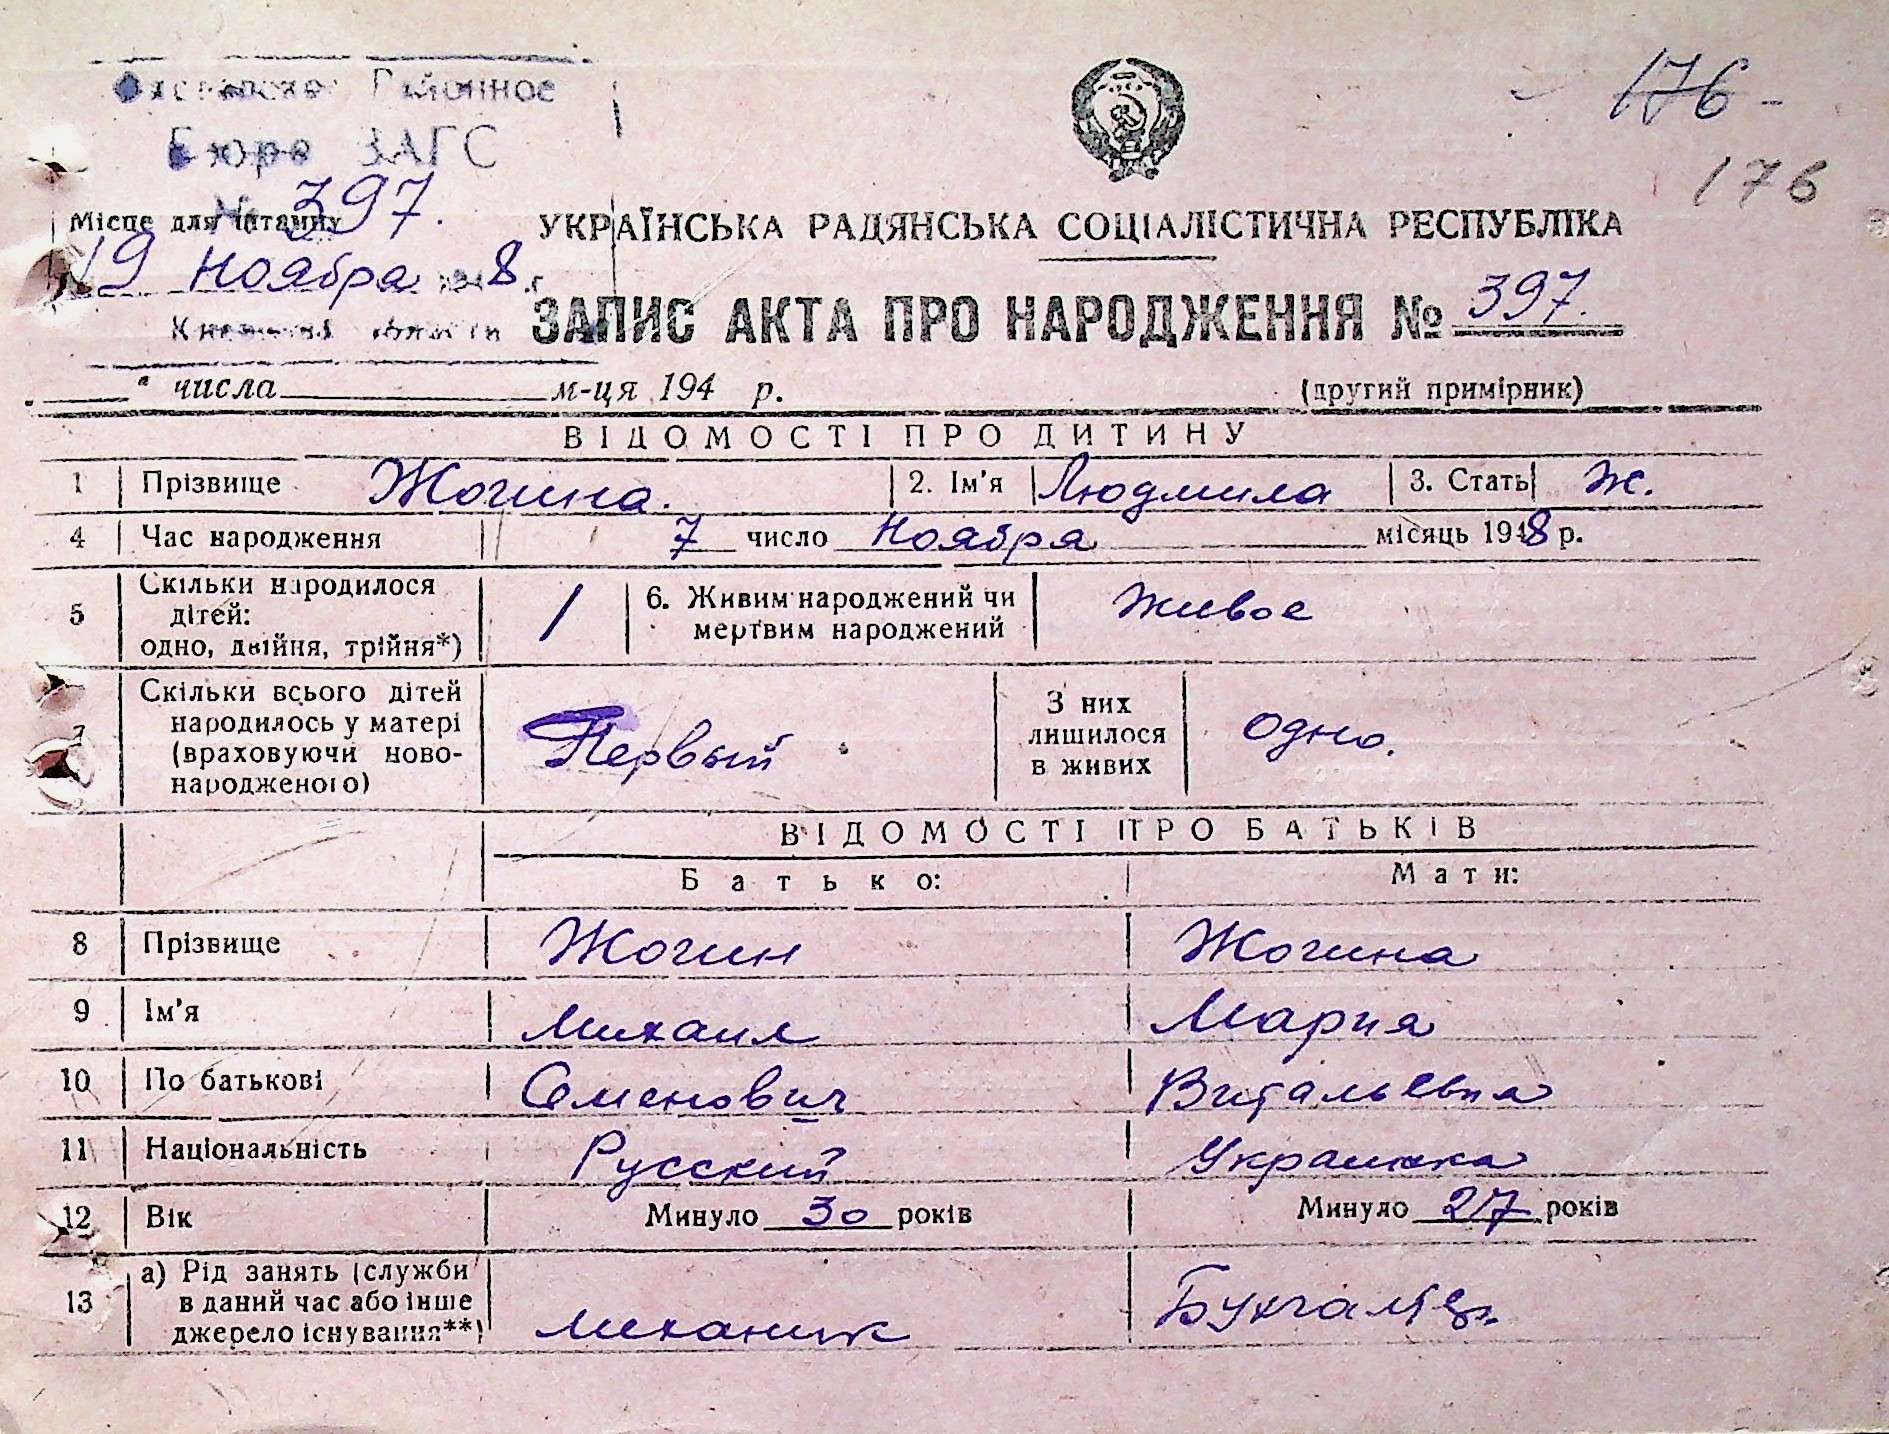 Районное
176 -
Бюро ЗАГС
176
Місце для штампу
№ 397.
УКРАЇНСЬКА РАДЯНСЬКА СОЦІАЛІСТИЧНА РЕСПУБЛІКА
19 Ноября 1948 г.
ЗАПИС АКТА ПРО НАРОДЖЕННЯ № 397.
области
" числа м-ця 194 р.
(другий примірник)
ВІДОМОСТІ ПРО ДИТИНУ
1 Прізвище Жогина. 2. Ім'я Людмила 3. Стать Ж.
4 Час народження 7 число Ноября місяць 1948 р.
5 Скільки народилося дітей: одно, двійня, трійня*) 1 6. Живим народжений чи мертвим народжений Живое
7 Скільки всього дітей народилось у матері (враховуючи ново-народженого) Первый З них лишилося в живих одно.
ВІДОМОСТІ ПРО БАТЬКІВ
Батько: Мати:
8 Прізвище Жогин Жогина
9 Ім'я Михаил Мария
10 По батькові Семенович Витальевна
11 Національність Русский Украинка
12 Вік Минуло 30 років Минуло 27 років
13 а) Рід занять (служби в даний час або інше джерело існування**) механик Бухгалтер.